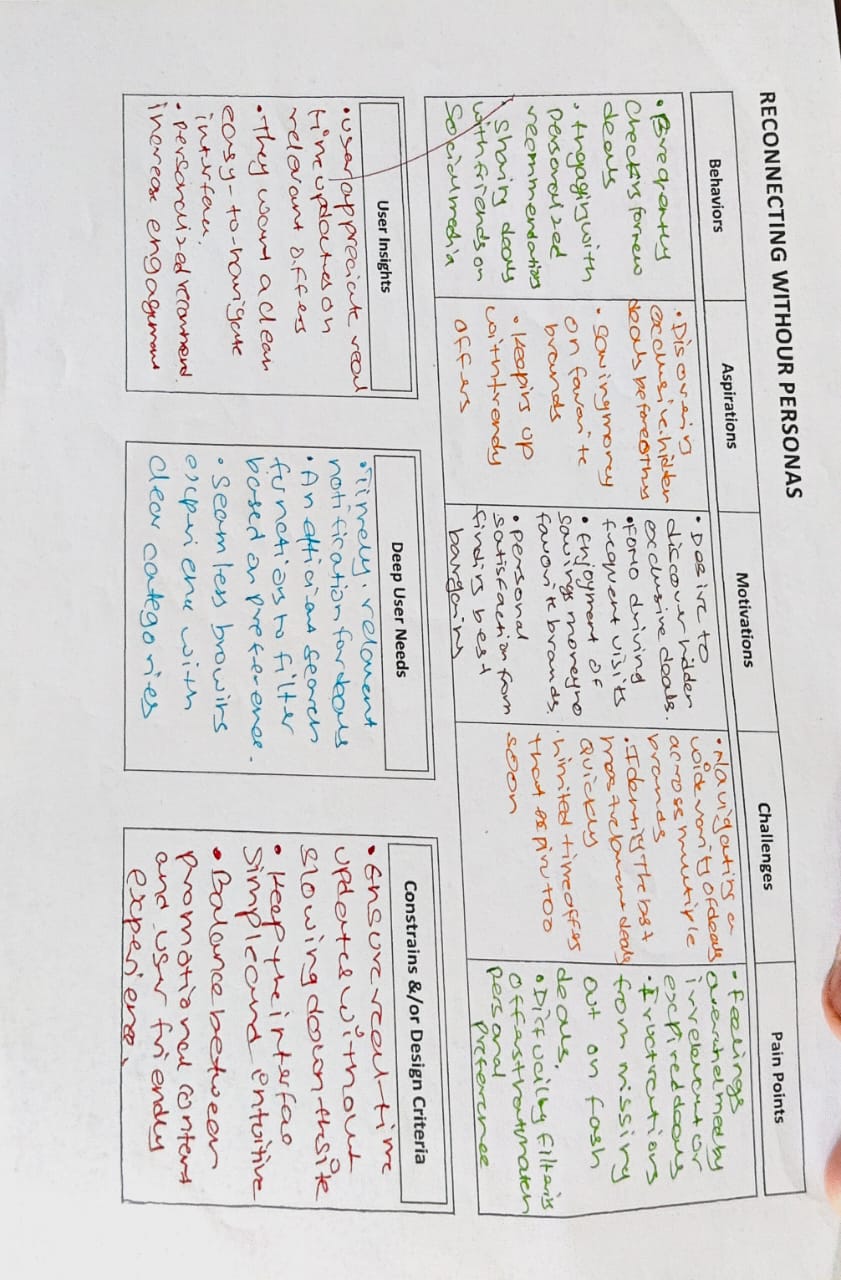 RECONNECTING WITHOUR PERSONAS
Behaviors
• Breqently
Checkrs for new
deals
• Engaging with
personalized
recommendations
Sharing deals
with friends on
Social media
Aspirations
• Disovering
exclusive hidden
deals before othrs
• Saving money
on favorite
brands
• Keepirs up
with trendy
offers
Motivations
• Desire to
discover hidden
exclusive deals.
• FOMO driving
frequent visits
• Enjoyment of
savings money no
favorite brands.
• personal
satisfaction from
findirs best
bargains
Challenges
• Navigating a
wide varity of deals
across multiple
brands
• Identify the bst
most relevant deals
quickly
• Limited time offes
that expire too
soon
Pain Points
• Feelings
overwhelmed by
irrelevant or
expired deals
• Fructrations
from missing
out on flash
deals.
• Difficulty filteris
offers that match
personal
preference
User Insights
• User appreciate real
time updates on
relevant offers
• They want a clean
easy-to-navigate
interface.
• personalized recommend.
increase engagement
Deep User Needs
• Timely. relevent
notification for deals
• An efficient search
functions to filter
based on preference.
• Seamless browirs
experience with
clear categories
Constrains &/or Design Criteria
• Ensure real-time
updates without
slowing down the site
• Keep the interfac
simple and entuitive
• Balance between
promotional content
and user friendly
experience.